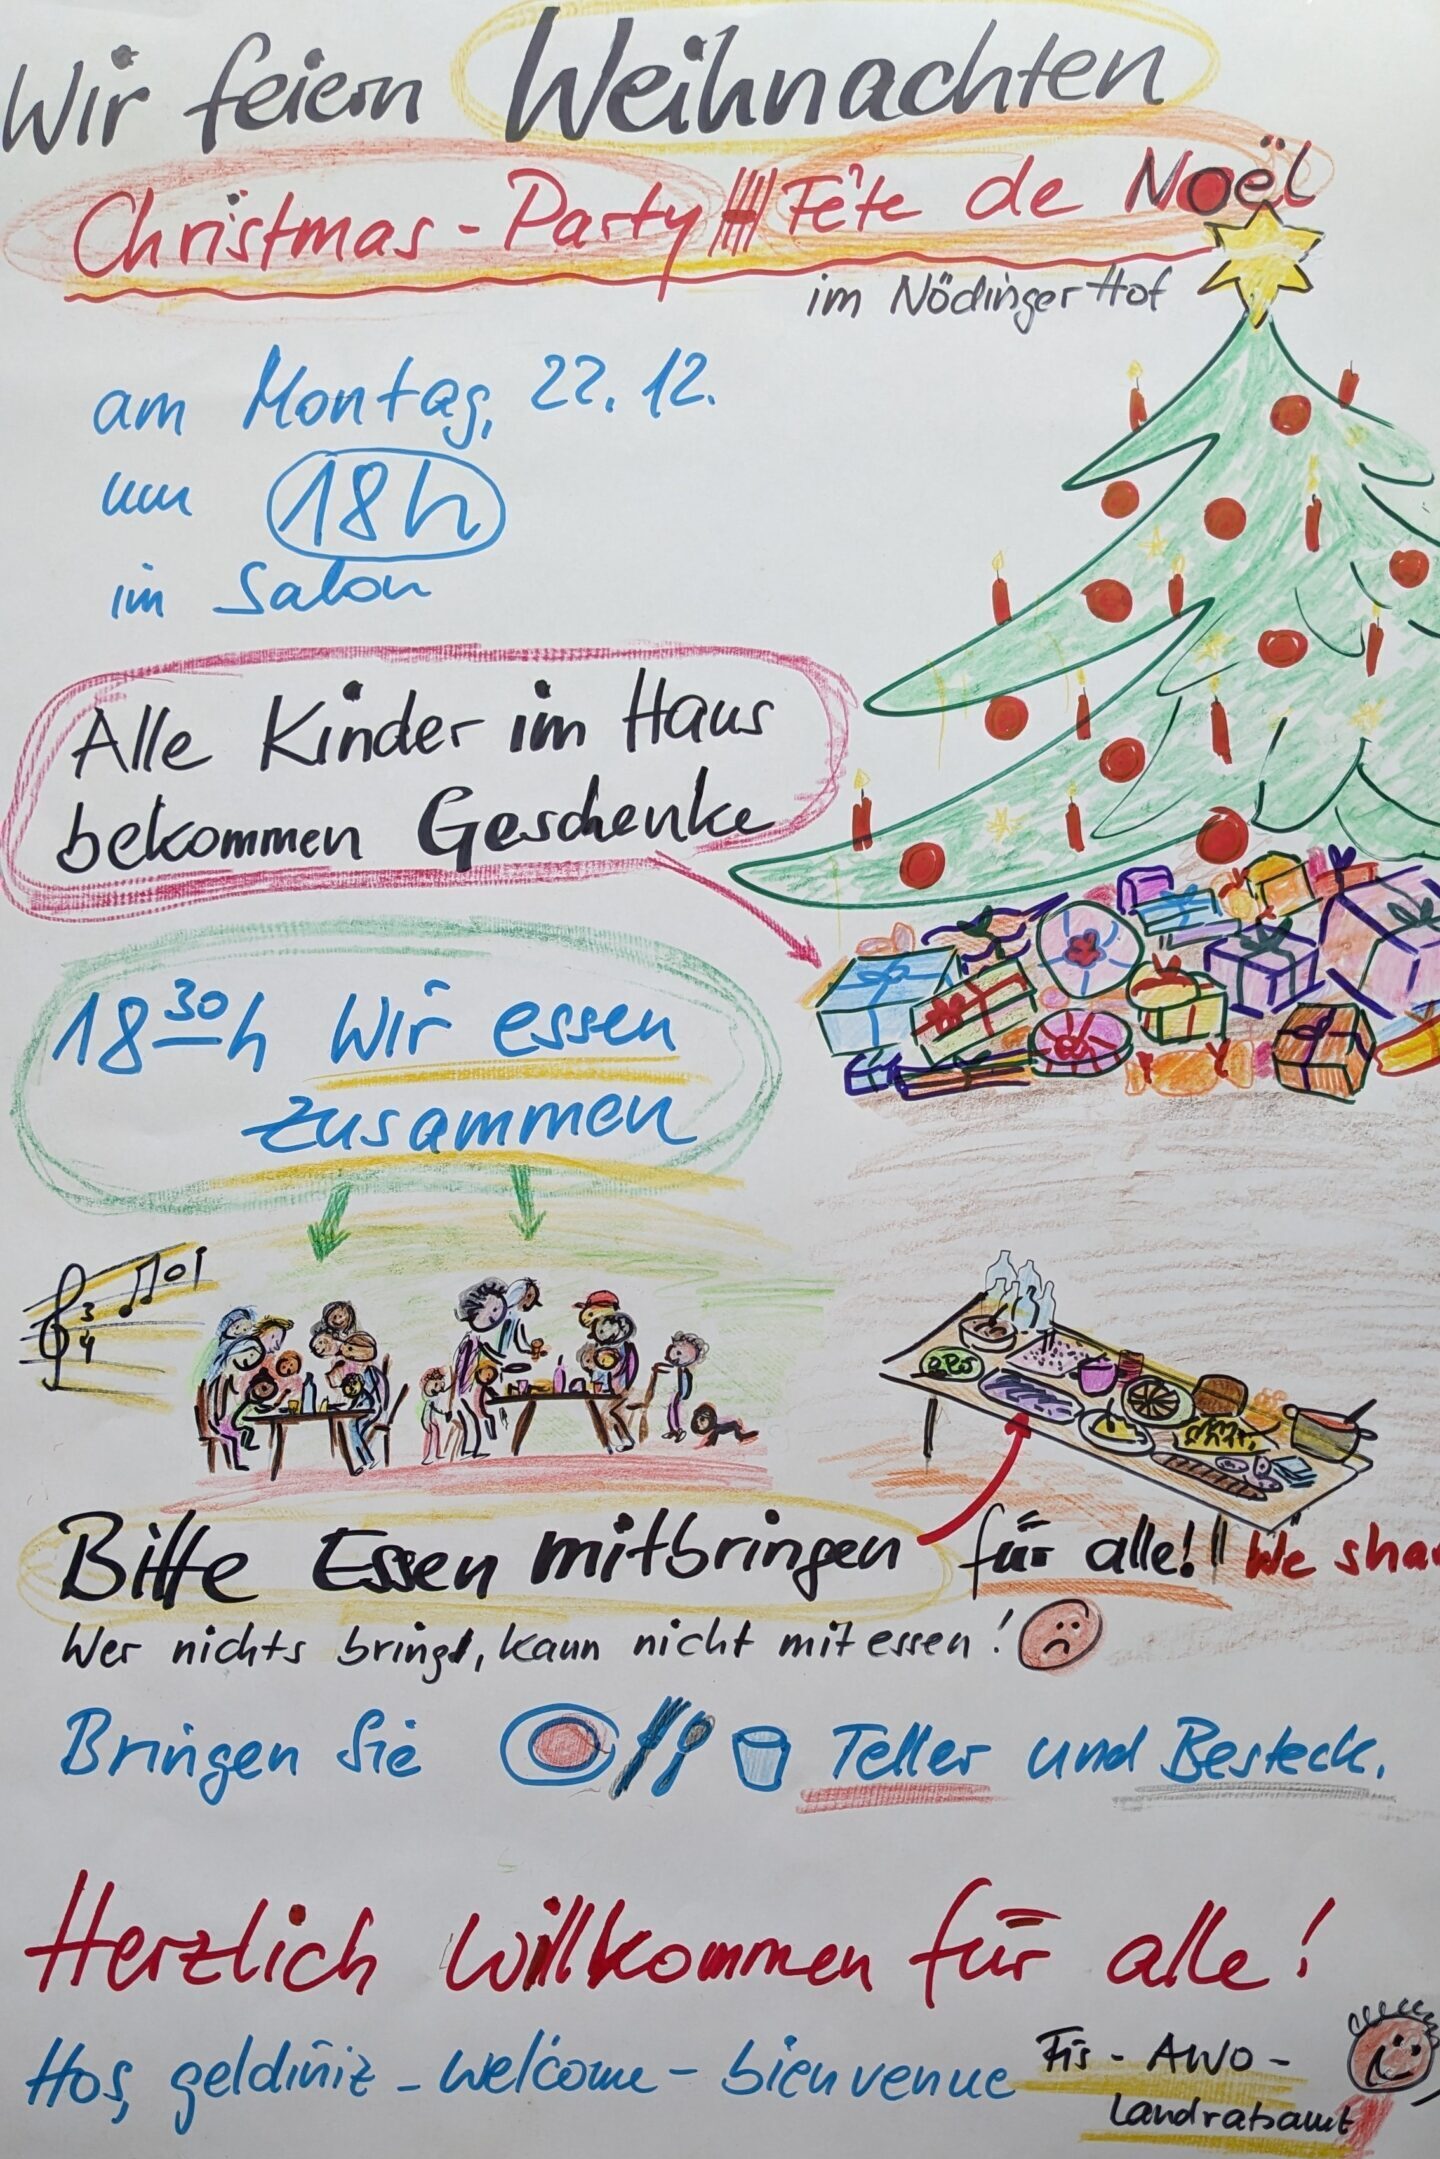 Wir feiern Weihnachten
Christmas-Party Fête de Noël
im Nödinger Hof
am Montag, 22.12.
um 18h
im Salon
Alle Kinder im Haus
bekommen Geschenke
18 30 h Wir essen
zusammen
3
4
Bitte Essen mitbringen für alle! We shar
Wer nichts bringt, kann nicht mitessen!
Bringen Sie Teller und Besteck.
Herzlich Willkommen für alle!
Hoş geldiniz - welcome - bienvenue
Fis - AWO -
Landratsamt